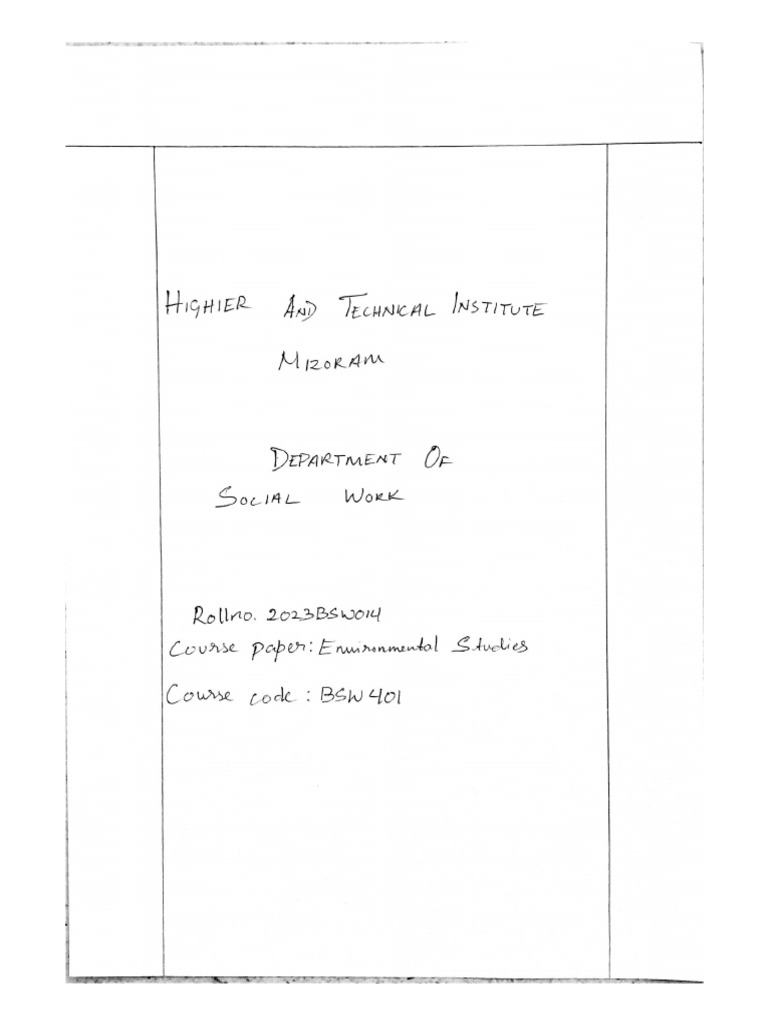 HIGHIER AND TECHNICAL INSTITUTE
MIZORAM
DEPARTMENT OF
SOCIAL WORK
Rollno. 2023BSW014
Course paper: Environmental Studies
Course code: BSW 401